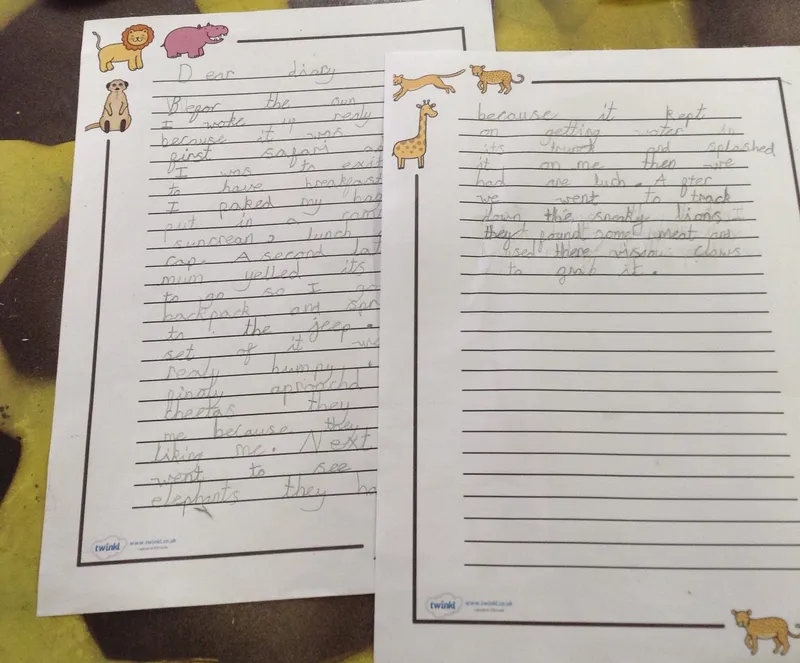 Dear diary
Befor the sun
I woke up realy
because it was
first safari
I was to exit
to have breakfast
I paked my bag
put in a
suncrean, lunch
cap. A second lat
mum yelled its
to go so I
backpack and spr
to the jeep.
set of it
realy bumpy.
finaly aproachd
cheetas they
me because they
liking me. Next
went to see
elephants they ha
twinkl www.twinkl.co.uk
because it kept
on getting water in
its trunk and splashed
it on me then we
had are luch. After
we went to track
down the sneaky lions
they found some meat and
used there claws
to grab it.
twinkl www.twinkl.co.uk